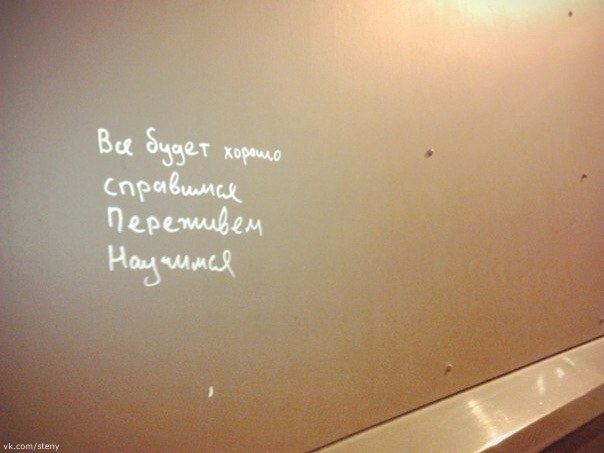 Все будет хорошо
справимся
Переживем
Научимся
vk.com/steny